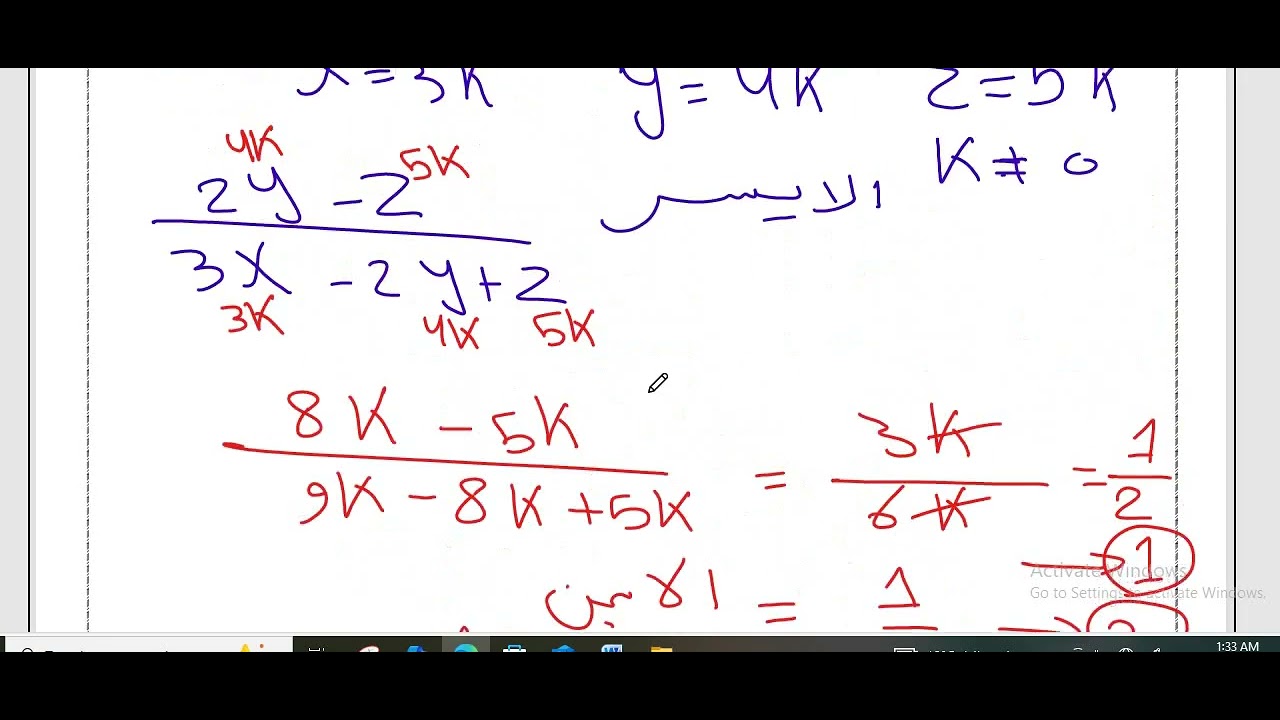 x = 3K y = 4K z = 5K
K ≠ 0
الايسر
4K 5K
2y - z
3x - 2y + z
3K 4K 5K
8K - 5K
9K - 8K + 5K
= 3K
6K
= 1
2
→ 1
الايمن = 1
→ 2
Activate Windows
Go to Settings to activate Windows.
1:33 AM